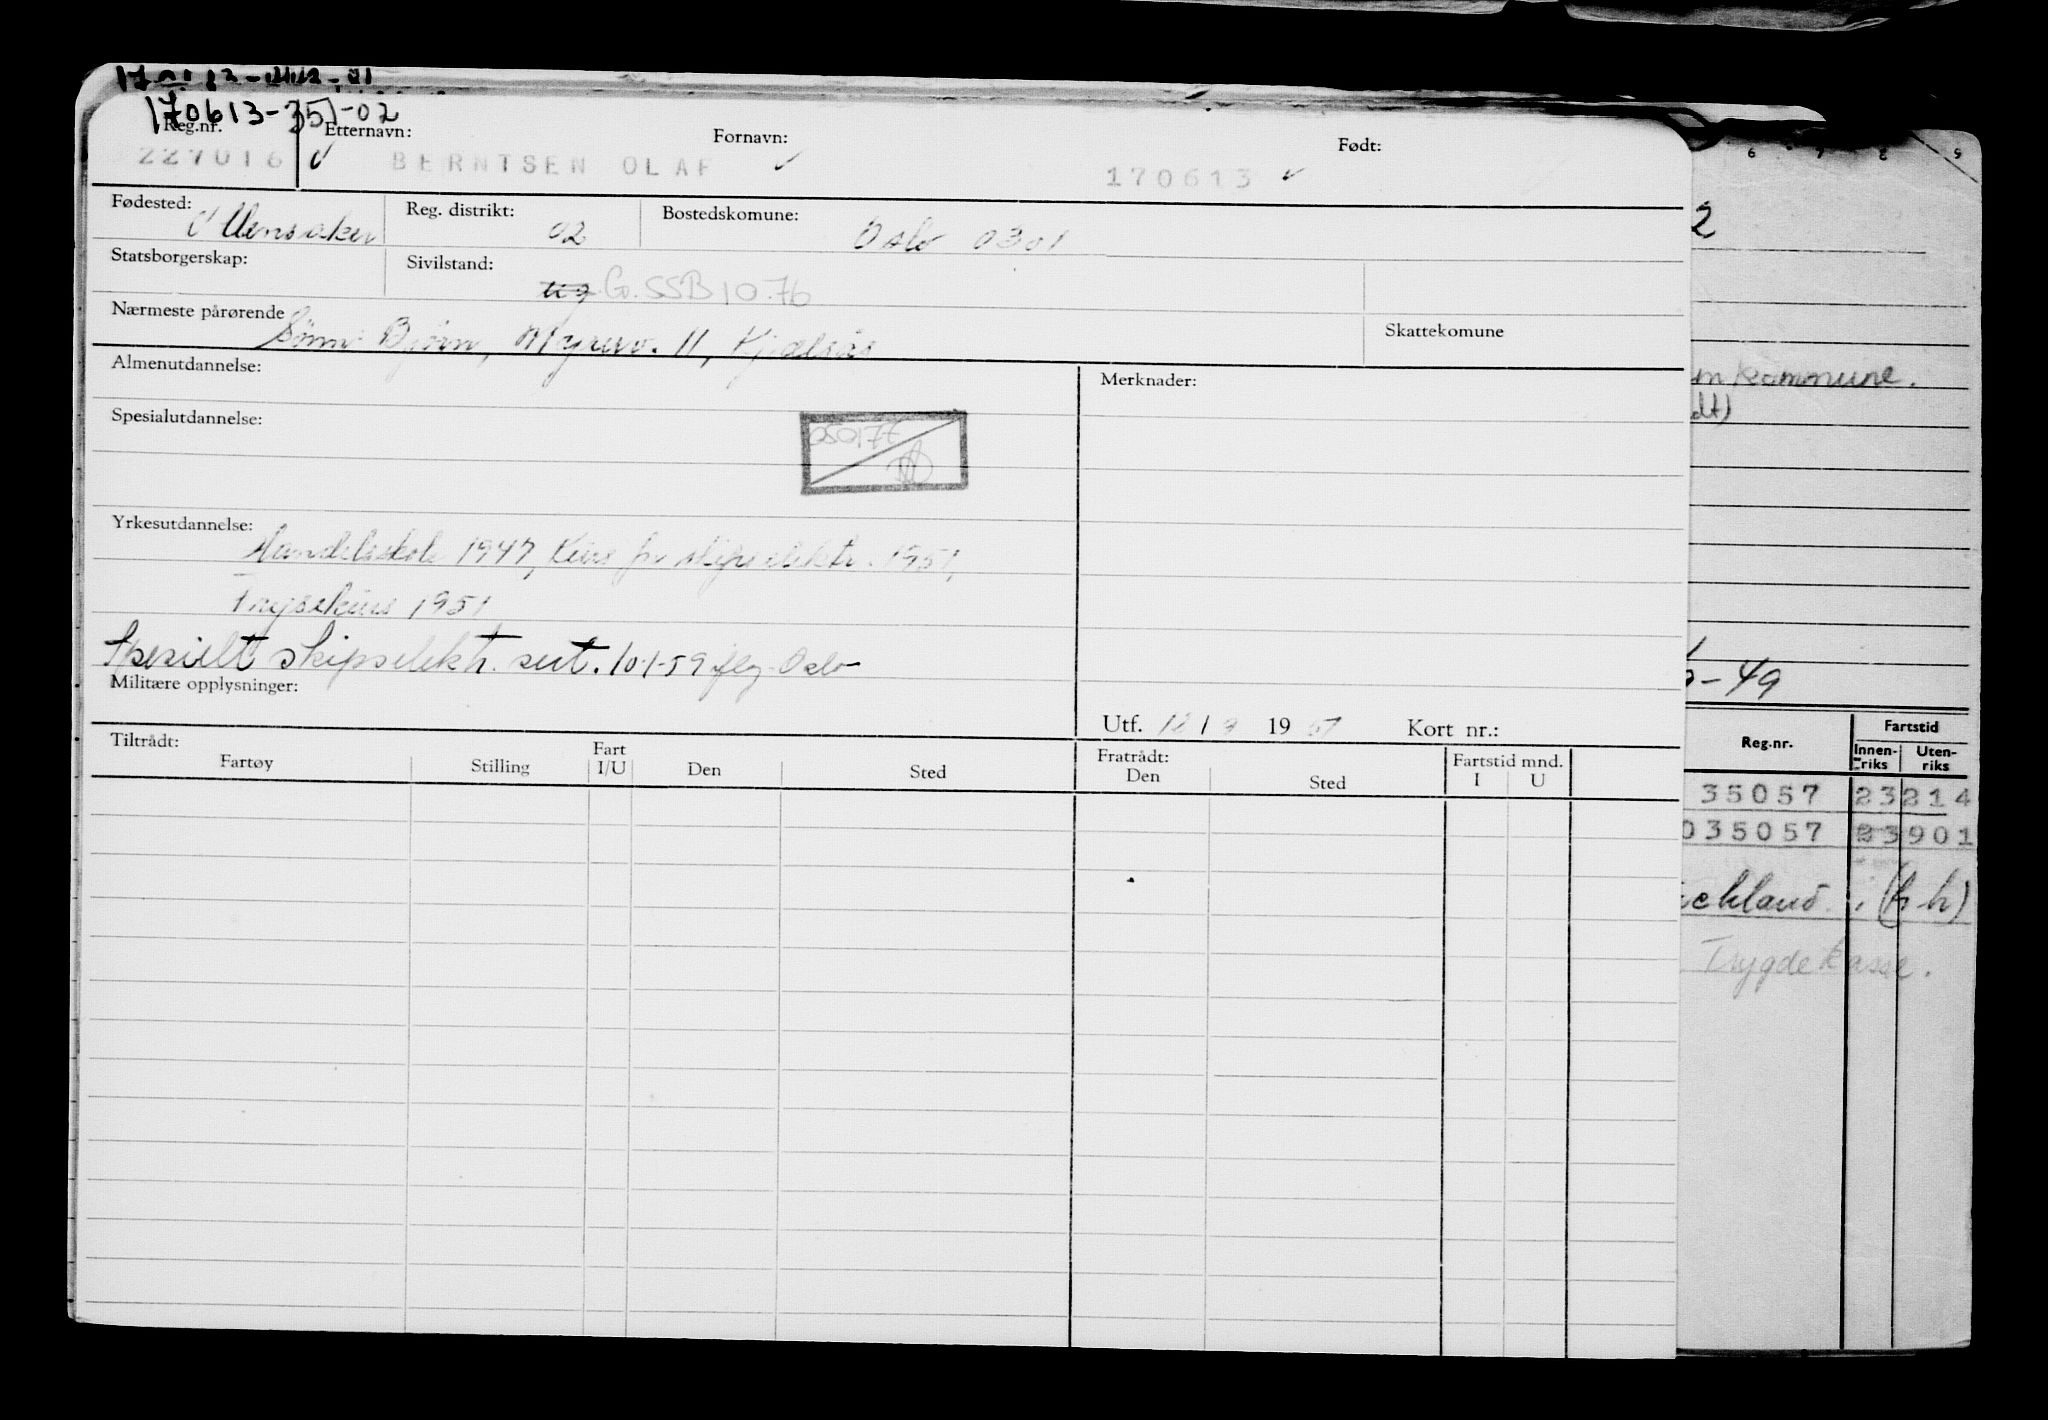 170613-351-02
Reg.nr. Etternavn: Fornavn: Født:
227016 BERNTSEN OLAF 170613
Fødested: Ullensaker Reg. distrikt: 02 Bostedskomune: Oslo 0301
Statsborgerskap: Sivilstand: ug G. SSB 10.76
Nærmeste pårørende Skattekomune
Sønn: Bjørn, Myrerv. 11, Kjelsås
Almenutdannelse: Merknader:
Spesialutdannelse:
Yrkesutdannelse:
Handelsskole 1947, Kurs for skipselektr. 1951,
1951
Spesielt skipselektr. sert. 10-1-59 Oslo
Militære opplysninger:
Utf. 12/9 1957 Kort nr.:
Tiltrådt: Fratrådt:
Fartøy Stilling Fart I/U Den Sted Den Sted Fartstid mnd. I U
6 7 8 9
2
kommune.
- 49
Reg.nr. Fartstid
Innen-riks Uten-riks
35057 23 214
035057 23 901
(h h)
Trygdekasse.